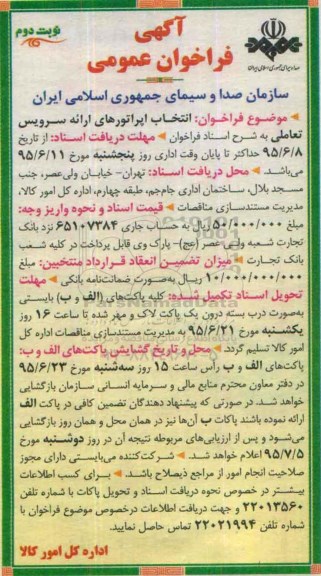 آگهی
فراخوان عمومی
نوبت دوم
صدا و سیمای جمهوری اسلامی ایران
سازمان صدا و سیمای جمهوری اسلامی ایران
موضوع فراخوان: انتخاب اپراتورهای ارائه سرویس
تعاملی به شرح اسناد فراخوان مهلت دریافت اسناد: از تاریخ
۹۵/۶/۸ حداکثر تا پایان وقت اداری روز پنجشنبه مورخ ۹۵/۶/۱۱
می‌باشد. محل دریافت اسناد: تهران- خیابان ولی‌عصر، جنب
مسجد بلال، ساختمان اداری جام‌جم، طبقه چهارم، اداره کل امور کالا،
مدیریت مستندسازی مناقصات قیمت اسناد و نحوه واریز وجه:
مبلغ ۵۰/۰۰۰/۰۰۰ ریال به حساب جاری ۶۵۱۰۷۳۸۴ نزد بانک
تجارت شعبه ولی عصر (عج)- پارک وی قابل پرداخت در کلیه شعب
بانک تجارت میزان تضمین انعقاد قرارداد منتخبین: مبلغ
۱۰/۰۰۰/۰۰۰/۰۰۰ ریال به‌صورت ضمانت‌نامه بانکی مهلت
تحویل اسناد تکمیل شده: کلیه پاکت‌های (الف و ب) بایستی
به‌صورت درب بسته درون یک پاکت لاک و مهر شده تا ساعت ۱۶ روز
یکشنبه مورخ ۹۵/۶/۲۱ به مدیریت مستندسازی مناقصات اداره کل
امور کالا تسلیم گردد. محل و تاریخ گشایش پاکت‌های الف و ب:
پاکت‌های الف و ب رأس ساعت ۱۵ روز سه‌شنبه مورخ ۹۵/۶/۲۳
در دفتر معاون محترم منابع مالی و سرمایه انسانی سازمان بازگشایی
خواهد شد. در صورتی که پیشنهاد دهندگان تضمین کافی در پاکت الف
ارائه نموده باشند پاکات ب آن‌ها نیز در همان محل و همان روز بازگشایی
می‌شود و پس از ارزیابی‌های مربوطه نتیجه آن در روز دوشنبه مورخ
۹۵/۷/۵ اعلام خواهد شد. شرکت‌کننده می‌بایستی دارای مجوز
صلاحیت انجام امور از مراجع ذیصلاح باشد. برای کسب اطلاعات
بیشتر در خصوص نحوه دریافت اسناد و تحویل پاکات با شماره تلفن
۲۲۰۱۳۵۶۰ و جهت دریافت اطلاعات درخصوص موضوع فراخوان با
شماره تلفن ۲۲۰۲۱۹۹۴ تماس حاصل نمایید.
اداره کل امور کالا